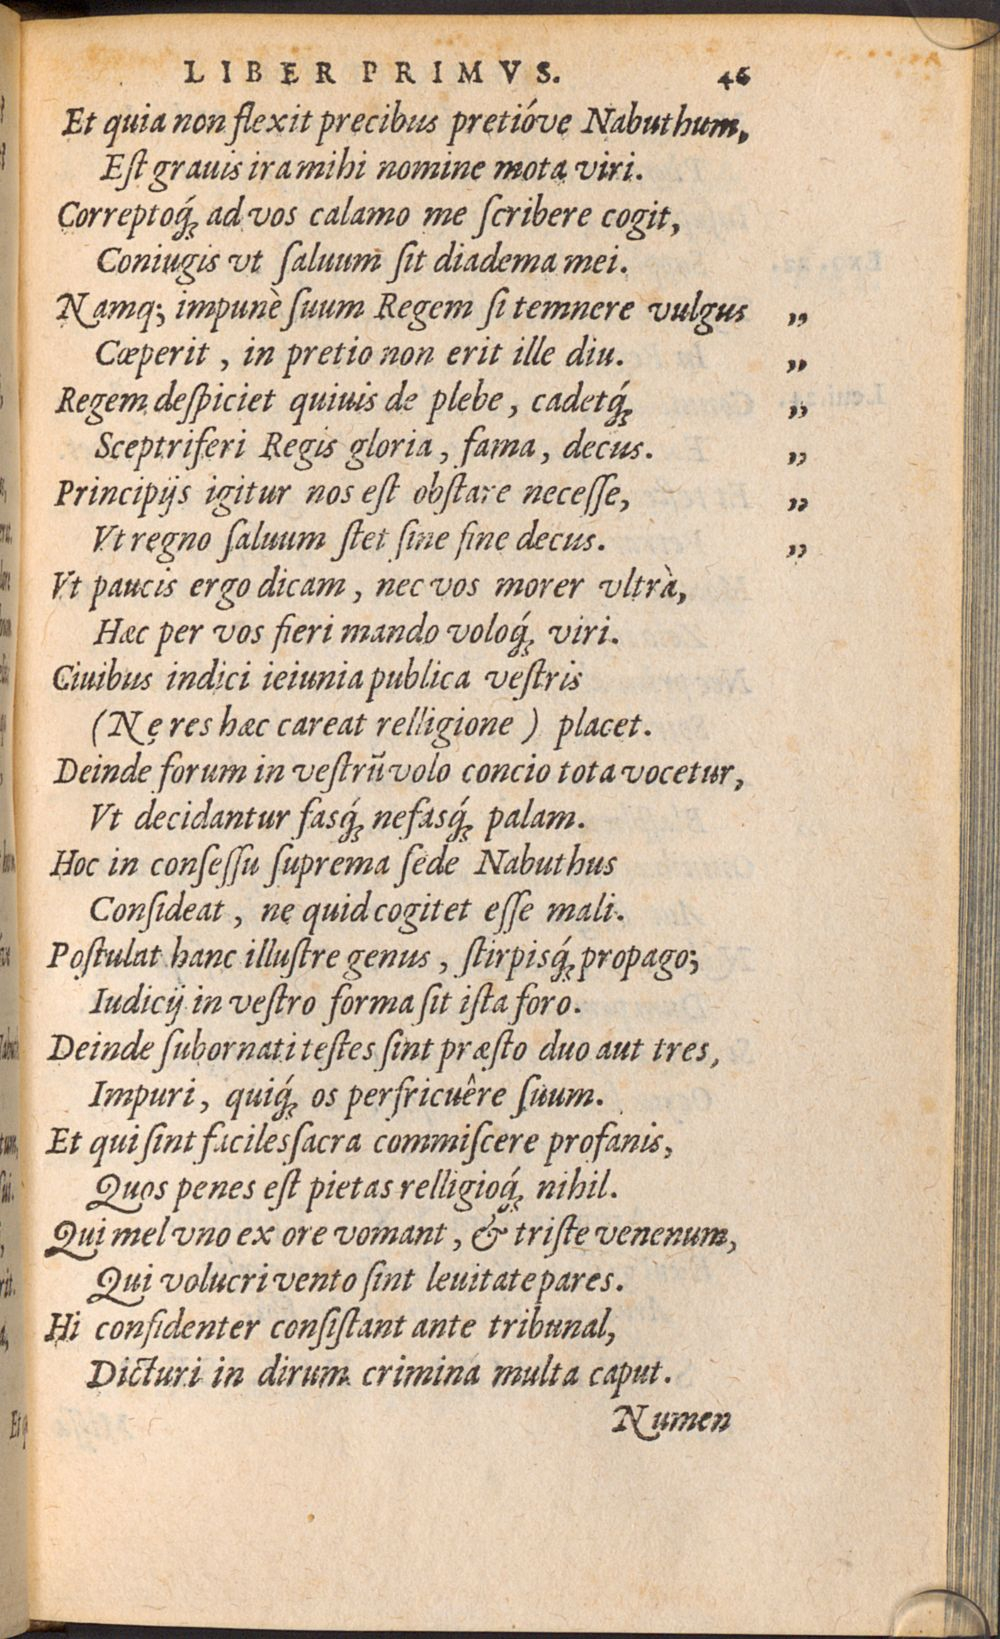 LIBER PRIMVS. 46
Et quia non flexit precibus pretióve Nabuthum,
Eſt grauis ira mihi nomine mota viri.
Correptoq́ꝫ ad vos calamo me ſcribere cogit,
Coniugis vt ſaluum ſit diadema mei.
Namq; impunè ſuum Regem ſi temnere vulgus „
Cœperit, in pretio non erit ille diu. „
Regem deſpiciet quiuis de plebe, cadetq́ꝫ „
Sceptriferi Regis gloria, fama, decus. „
Principijs igitur nos eſt obſtare neceſſe, „
Vt regno ſaluum ſtet ſine fine decus. „
Vt paucis ergo dicam, nec vos morer vltrà,
Hæc per vos fieri mando voloq́ꝫ viri.
Ciuibus indici ieiunia publica veſtris
(Ne res hæc careat relligione) placet.
Deinde forum in veſtrũ volo concio tota vocetur,
Vt decidantur fasq́ꝫ nefasq́ꝫ palam.
Hoc in conſeſſu ſuprema ſede Nabuthus
Conſideat, ne quid cogitet eſſe mali.
Poſtulat hanc illuſtre genus, ſtirpisq́ꝫ propago;
Iudicij in veſtro forma ſit iſta foro.
Deinde ſubornati teſtes ſint præſto duo aut tres,
Impuri, quiq́ꝫ os perfricuêre ſuum.
Et qui ſint faciles ſacra commiſcere profanis,
Quos penes eſt pietas relligioq́ꝫ nihil.
Qui mel vno ex ore vomant, & triſte venenum,
Qui volucri vento ſint leuitate pares.
Hi confidenter conſiſtant ante tribunal,
Dicturi in dirum crimina multa caput.
Numen